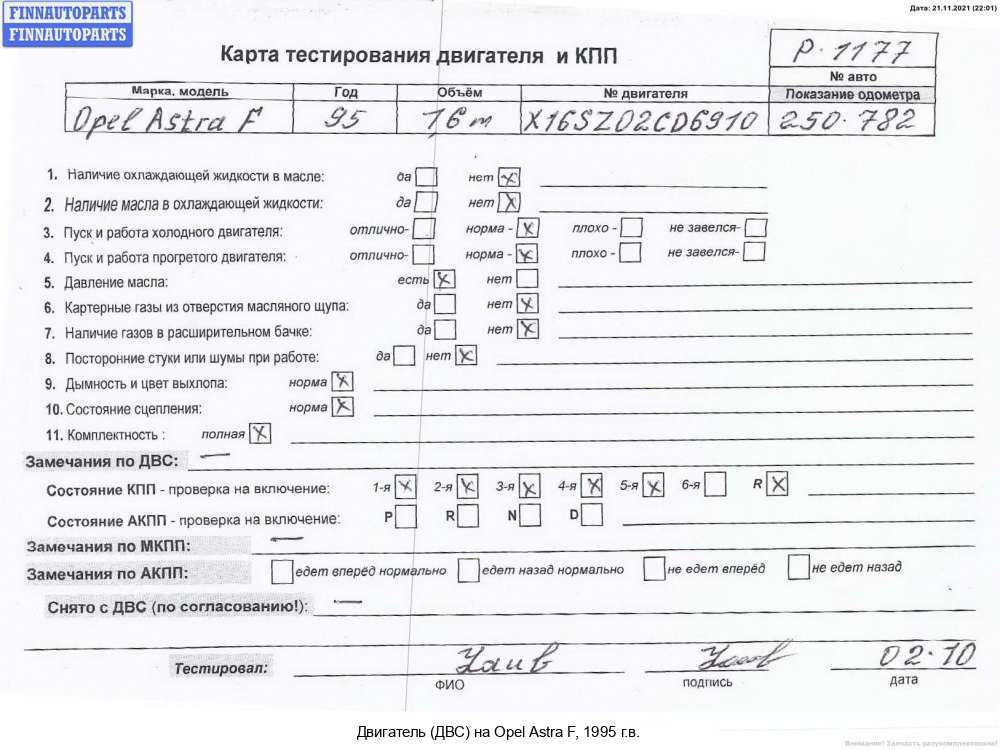 FINNAUTOPARTS
FINNAUTOPARTS
Дата: 21.11.2021 (22:01)
Карта тестирования двигателя и КПП
P·1177
№ авто
Марка, модель Год Объём № двигателя Показание одометра
Opel Astra F 95 1,6 m X16SZ02CD6910 250·782
1. Наличие охлаждающей жидкости в масле: да нет X
2. Наличие масла в охлаждающей жидкости: да нет X
3. Пуск и работа холодного двигателя: отлично- норма - X плохо - не завелся-
4. Пуск и работа прогретого двигателя: отлично- норма - X плохо - не завелся-
5. Давление масла: есть X нет
6. Картерные газы из отверстия масляного щупа: да нет X
7. Наличие газов в расширительном бачке: да нет X
8. Посторонние стуки или шумы при работе: да нет X
9. Дымность и цвет выхлопа: норма X
10. Состояние сцепления: норма X
11. Комплектность : полная X
Замечания по ДВС: —
Состояние КПП - проверка на включение: 1-я X 2-я X 3-я X 4-я X 5-я X 6-я R X
Состояние АКПП - проверка на включение: P R N D
Замечания по МКПП: —
Замечания по АКПП: едет вперёд нормально едет назад нормально не едет вперёд не едет назад
Снято с ДВС (по согласованию!): —
Тестировал: 02·10
ФИО подпись дата
Двигатель (ДВС) на Opel Astra F, 1995 г.в.
Внимание! Запчасть разукомплектована!